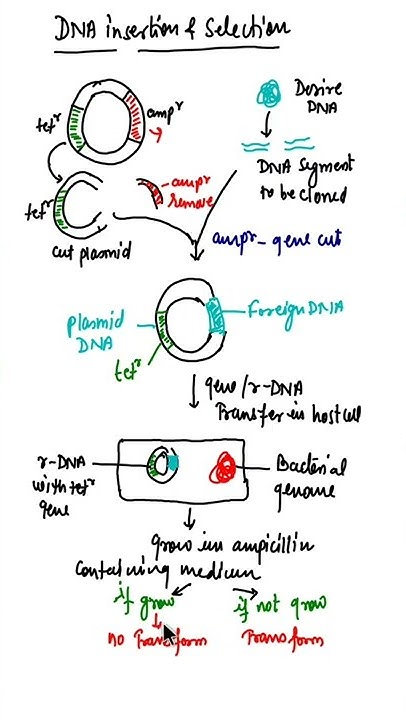 DNA insertion & Selection
tetʳ
ampʳ
Desire
DNA
DNA Segment
to be cloned
tetʳ
ampr
remove
cut plasmid
ampr- gene cut
plasmid
DNA
Foreign DNA
tetʳ
gene/r-DNA
Transfer in host cell
r-DNA
with tetʳ
gene
Bacterial
genome
grow in ampicillin
Containing medium
if grow
if not grow
no Transform
Transform